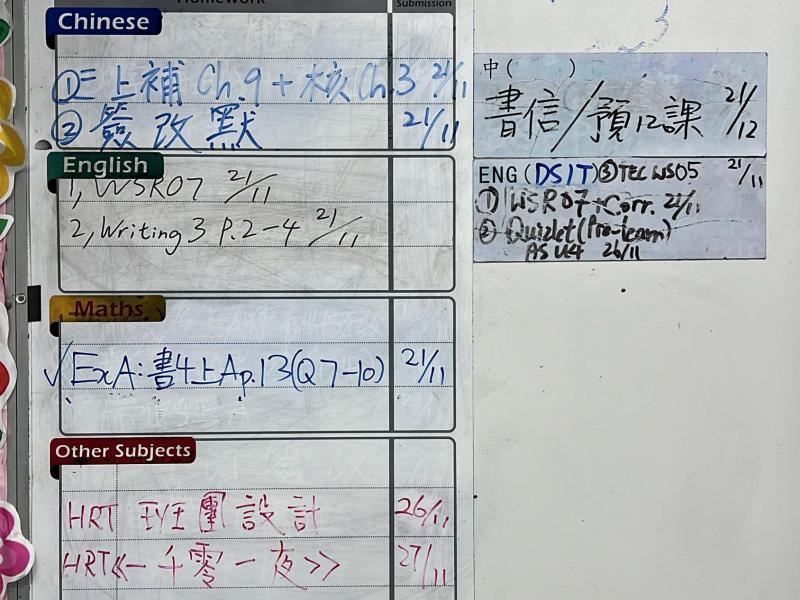 Homework
Submission
Chinese
①三上補 Ch.9 + 核 Ch.3 21/11
② 簽改默 21/11
English
1, WSR07 21/11
2, Writing 3 P.2-4 21/11
Maths
✓ ExA:書4上Ap.13(Q7-10) 21/11
Other Subjects
HRT 班團設計 26/11
HRT《一千零一夜》 27/11
中( )
書信/預12課 21/12
ENG (DSIT) ③TEC WS05 21/11
① WSR07+Corr. 21/11
② Quizlet (Pre-learn)
AS U4 26/11